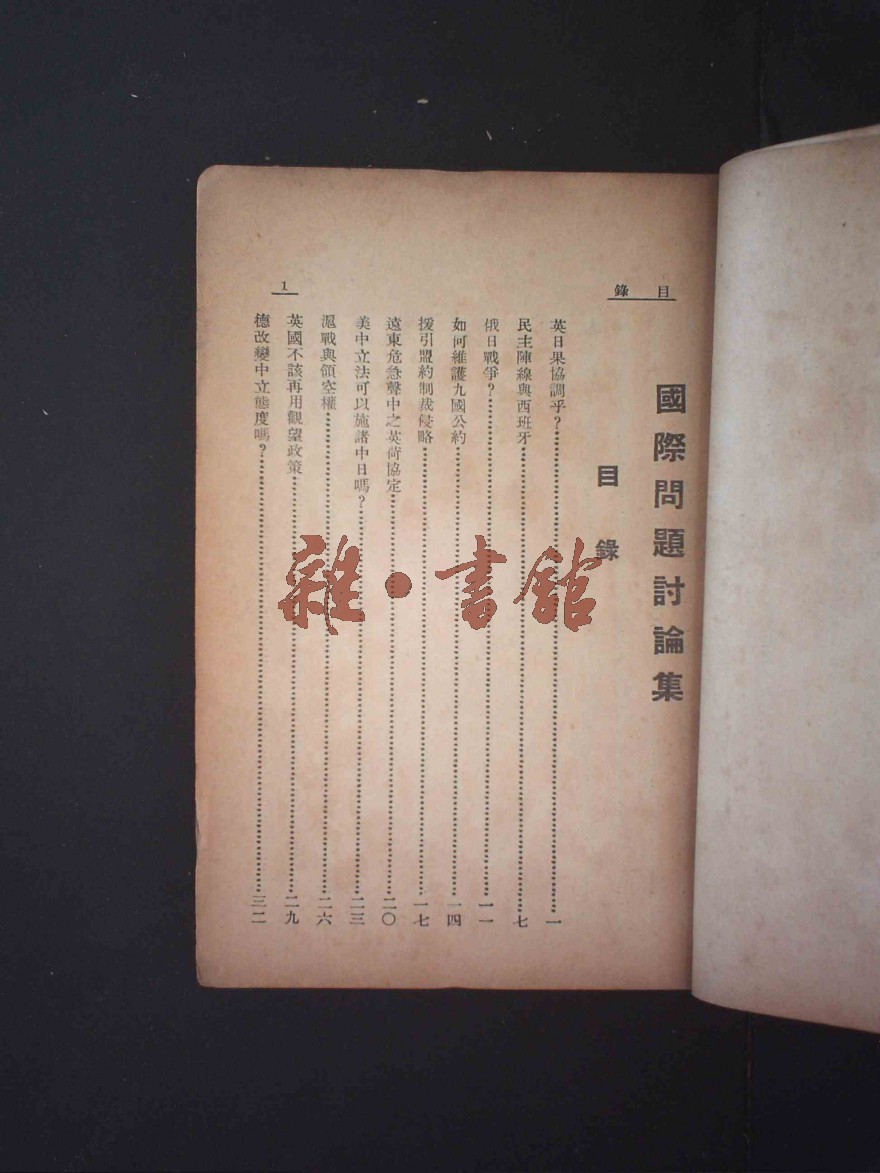 目錄
國際問題討論集
目錄
英日果協調乎？……一
民主陣線與西班牙……七
俄日戰爭？……一一
如何維護九國公約……一四
援引盟約制裁侵略……一七
遠東危急聲中之英荷協定……二〇
美中立法可以施諸中日嗎？……二三
滬戰與領空權……二六
英國不該再用觀望政策……二九
德改變中立態度嗎？……三二
1
雜·書館